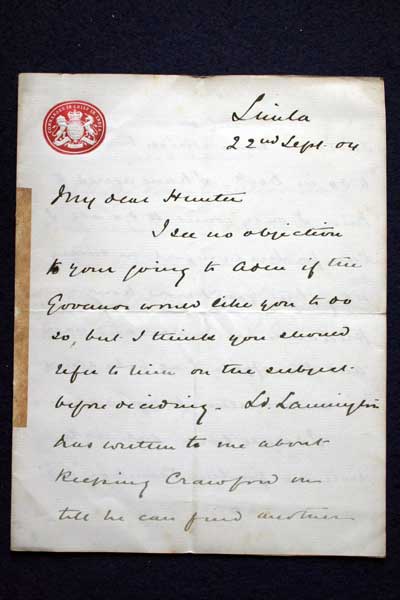 COMMANDER IN CHIEF IN INDIA
Simla
22nd Sept. 04
My dear Hunter
I see no objection
to your going to Aden if the
Governor would like you to do
so, but I think you should
refer to him on the subject
before deciding. Ld. Lamington
has written to me about
keeping Crawford on
till he can find another